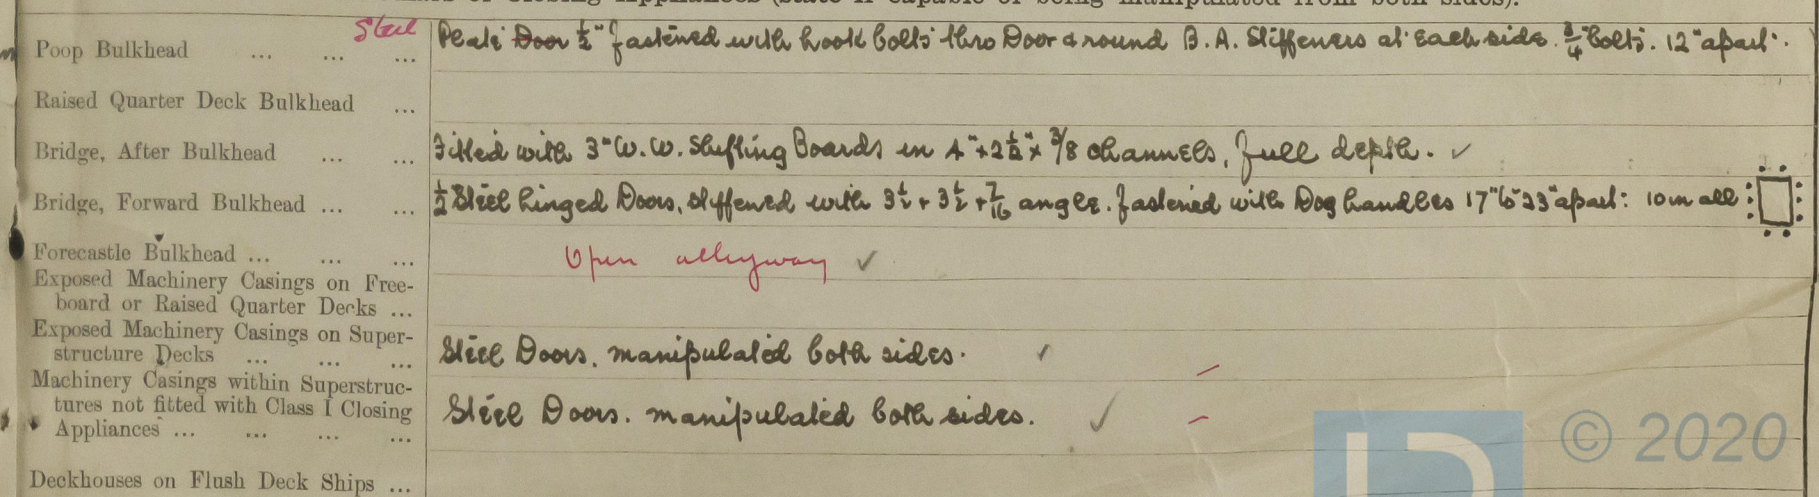 of Closing Appliances (state if capable of being manipulated from both sides).
Poop Bulkhead ... ... ... Steel Plate Door ½" fastened with hook bolts thro Door & round B.A. Stiffeners at each side. ¾" bolts. 12" apart.
Raised Quarter Deck Bulkhead ...
Bridge, After Bulkhead ... ... Fitted with 3" W.W. Shifting Boards in 4" x 2½" x 3/8 channels, full depth. ✓
Bridge, Forward Bulkhead ... ... ½ Steel hinged Doors, stiffened with 3½ + 3½ + 7/16 angle. fastened with Dog handles 17" to 23" apart: 10 in all
Forecastle Bulkhead ... ... ... Open alleyway ✓
Exposed Machinery Casings on Free-
board or Raised Quarter Decks ...
Exposed Machinery Casings on Super-
structure Decks ... ... ... Steel Doors. manipulated both sides. ✓
Machinery Casings within Superstruc-
tures not fitted with Class I Closing Steel Doors. manipulated both sides. ✓
Appliances ... ... ... ...
Deckhouses on Flush Deck Ships ...
© 2020